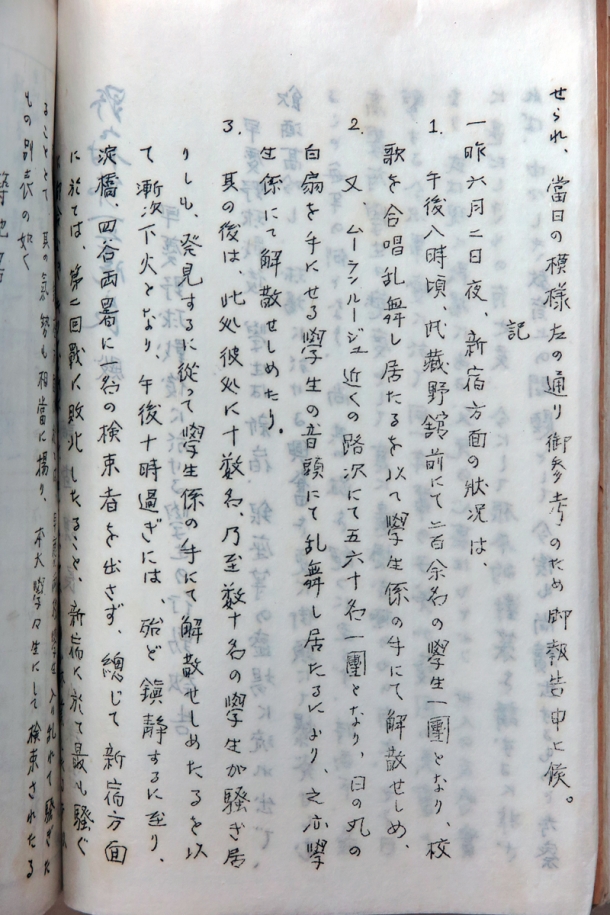 せられ、當日の模樣左の通り御参考のため御報告申上候。
記
一昨六月二日夜、新宿方面の狀况は、
1. 午後八時頃、武藏野舘前にて二百余名の學生一團となり、校
歌を合唱乱舞し居たるを以て學生係の手にて解散せしめ、
2. 又、ムーランルージュ近くの路次にて五六十名一團となり、日の丸の
白扇を手にせる學生の音頭にて乱舞し居たるにより、之亦學
生係にて解散せしめたり。
3. 其の後は、此処彼処に十数名、乃至数十名の學生が騒ぎ居
りしも、発見するに從って學生係の手にて解散せしめたるを以
て漸次下火となり、午後十時過ぎには、殆ど鎭静するに至り、
淀橋、四谷両署に一名の検束者を出さず、總じて新宿方面
に於ては、第二回戰に敗北したること、新宿に於て最も騒ぐ
入り乱れて騒ぎた
ることとて其の氣勢も相當に揚り、本大學々生にして検束されたる
もの別表の如く
築地